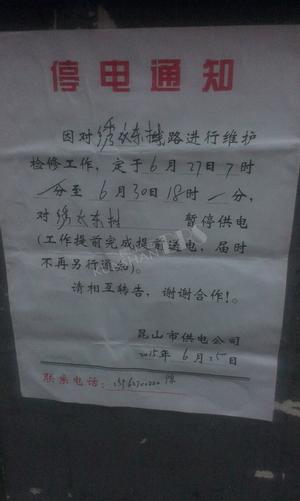 停电通知
因对绣衣东村线路进行维护
检修工作，定于6月27日7时
/分至6月30日18时/分，
对绣衣东村 暂停供电
(工作提前完成提前送电，届时
不再另行通知)。
请相互转告，谢谢合作!。
昆山市供电公司
2015年6月25日
联系电话: